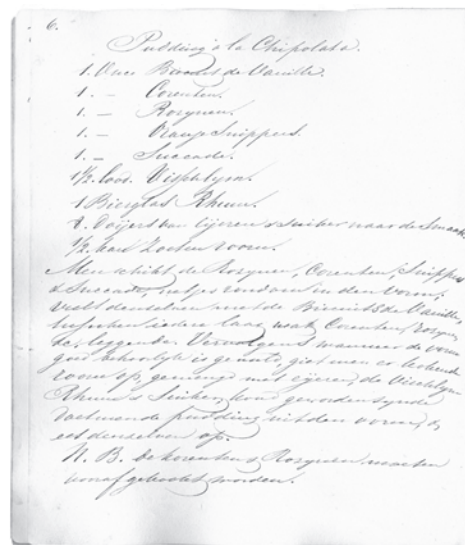 6.
Pudding à la Chipolata.
1. Ons Biscuit de Vanille.
1. — Corenten.
1. — Rozynen.
1. — Oranje Snippers.
1. — Succade.
1½. lood. Vischlym.
1 Bierglas Rhum.
8. Doijers van Eijeren & Suiker naar de Smaak
½. kan Zoeten room.
Men schikt de Rozynen, Corenten, Snippers
& Succade, netjes rondom in den vorm,
vult denzelven met de Biscuits de Vanille,
tusschen iedere laag wat Corenten, rozynen
&c. leggende. Vervolgens wanneer de vorm
goed behoorlyk is gevuld, giet men er kokende
room op, gemengd met eijeren, de Vischlym
Rhum & Suiker, koud geworden synde
doet men de pudding uit den vorm, &
eet denzelven op.
N. B. de korenten & Rozynen moeten
vooraf gekookt worden.